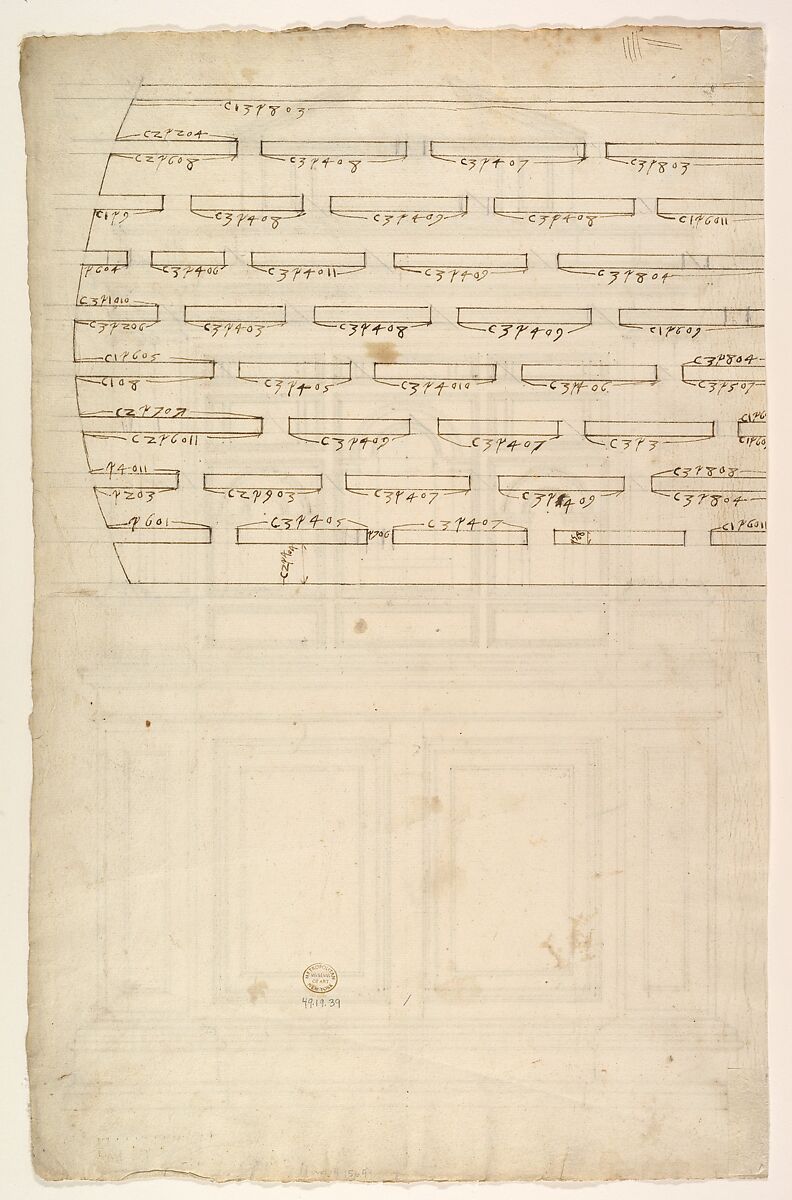 c13p803
c2p204
c2p608 c3p408 c3p407 c3p803
c1p9 c3p408 c3p409 c3p408 c1p6011
p604 c3p406 c3p4011 c3p409 c3p804
c3p1010
c3p206 c3p403 c3p408 c3p409 c1p609
c1p605 c3p804
c108 c3p405 c3p4010 c3p406 c3p507
c2p707 c1p6
c2p6011 c3p409 c3p407 c3p3
p4011 c3p808
p203 c2p903 c3p407 c3p409 c3p804
p601 c3p405 p706 c3p407 c1p6011
METROPOLITAN
MUSEUM
OF ART
NEW YORK
49.19.39